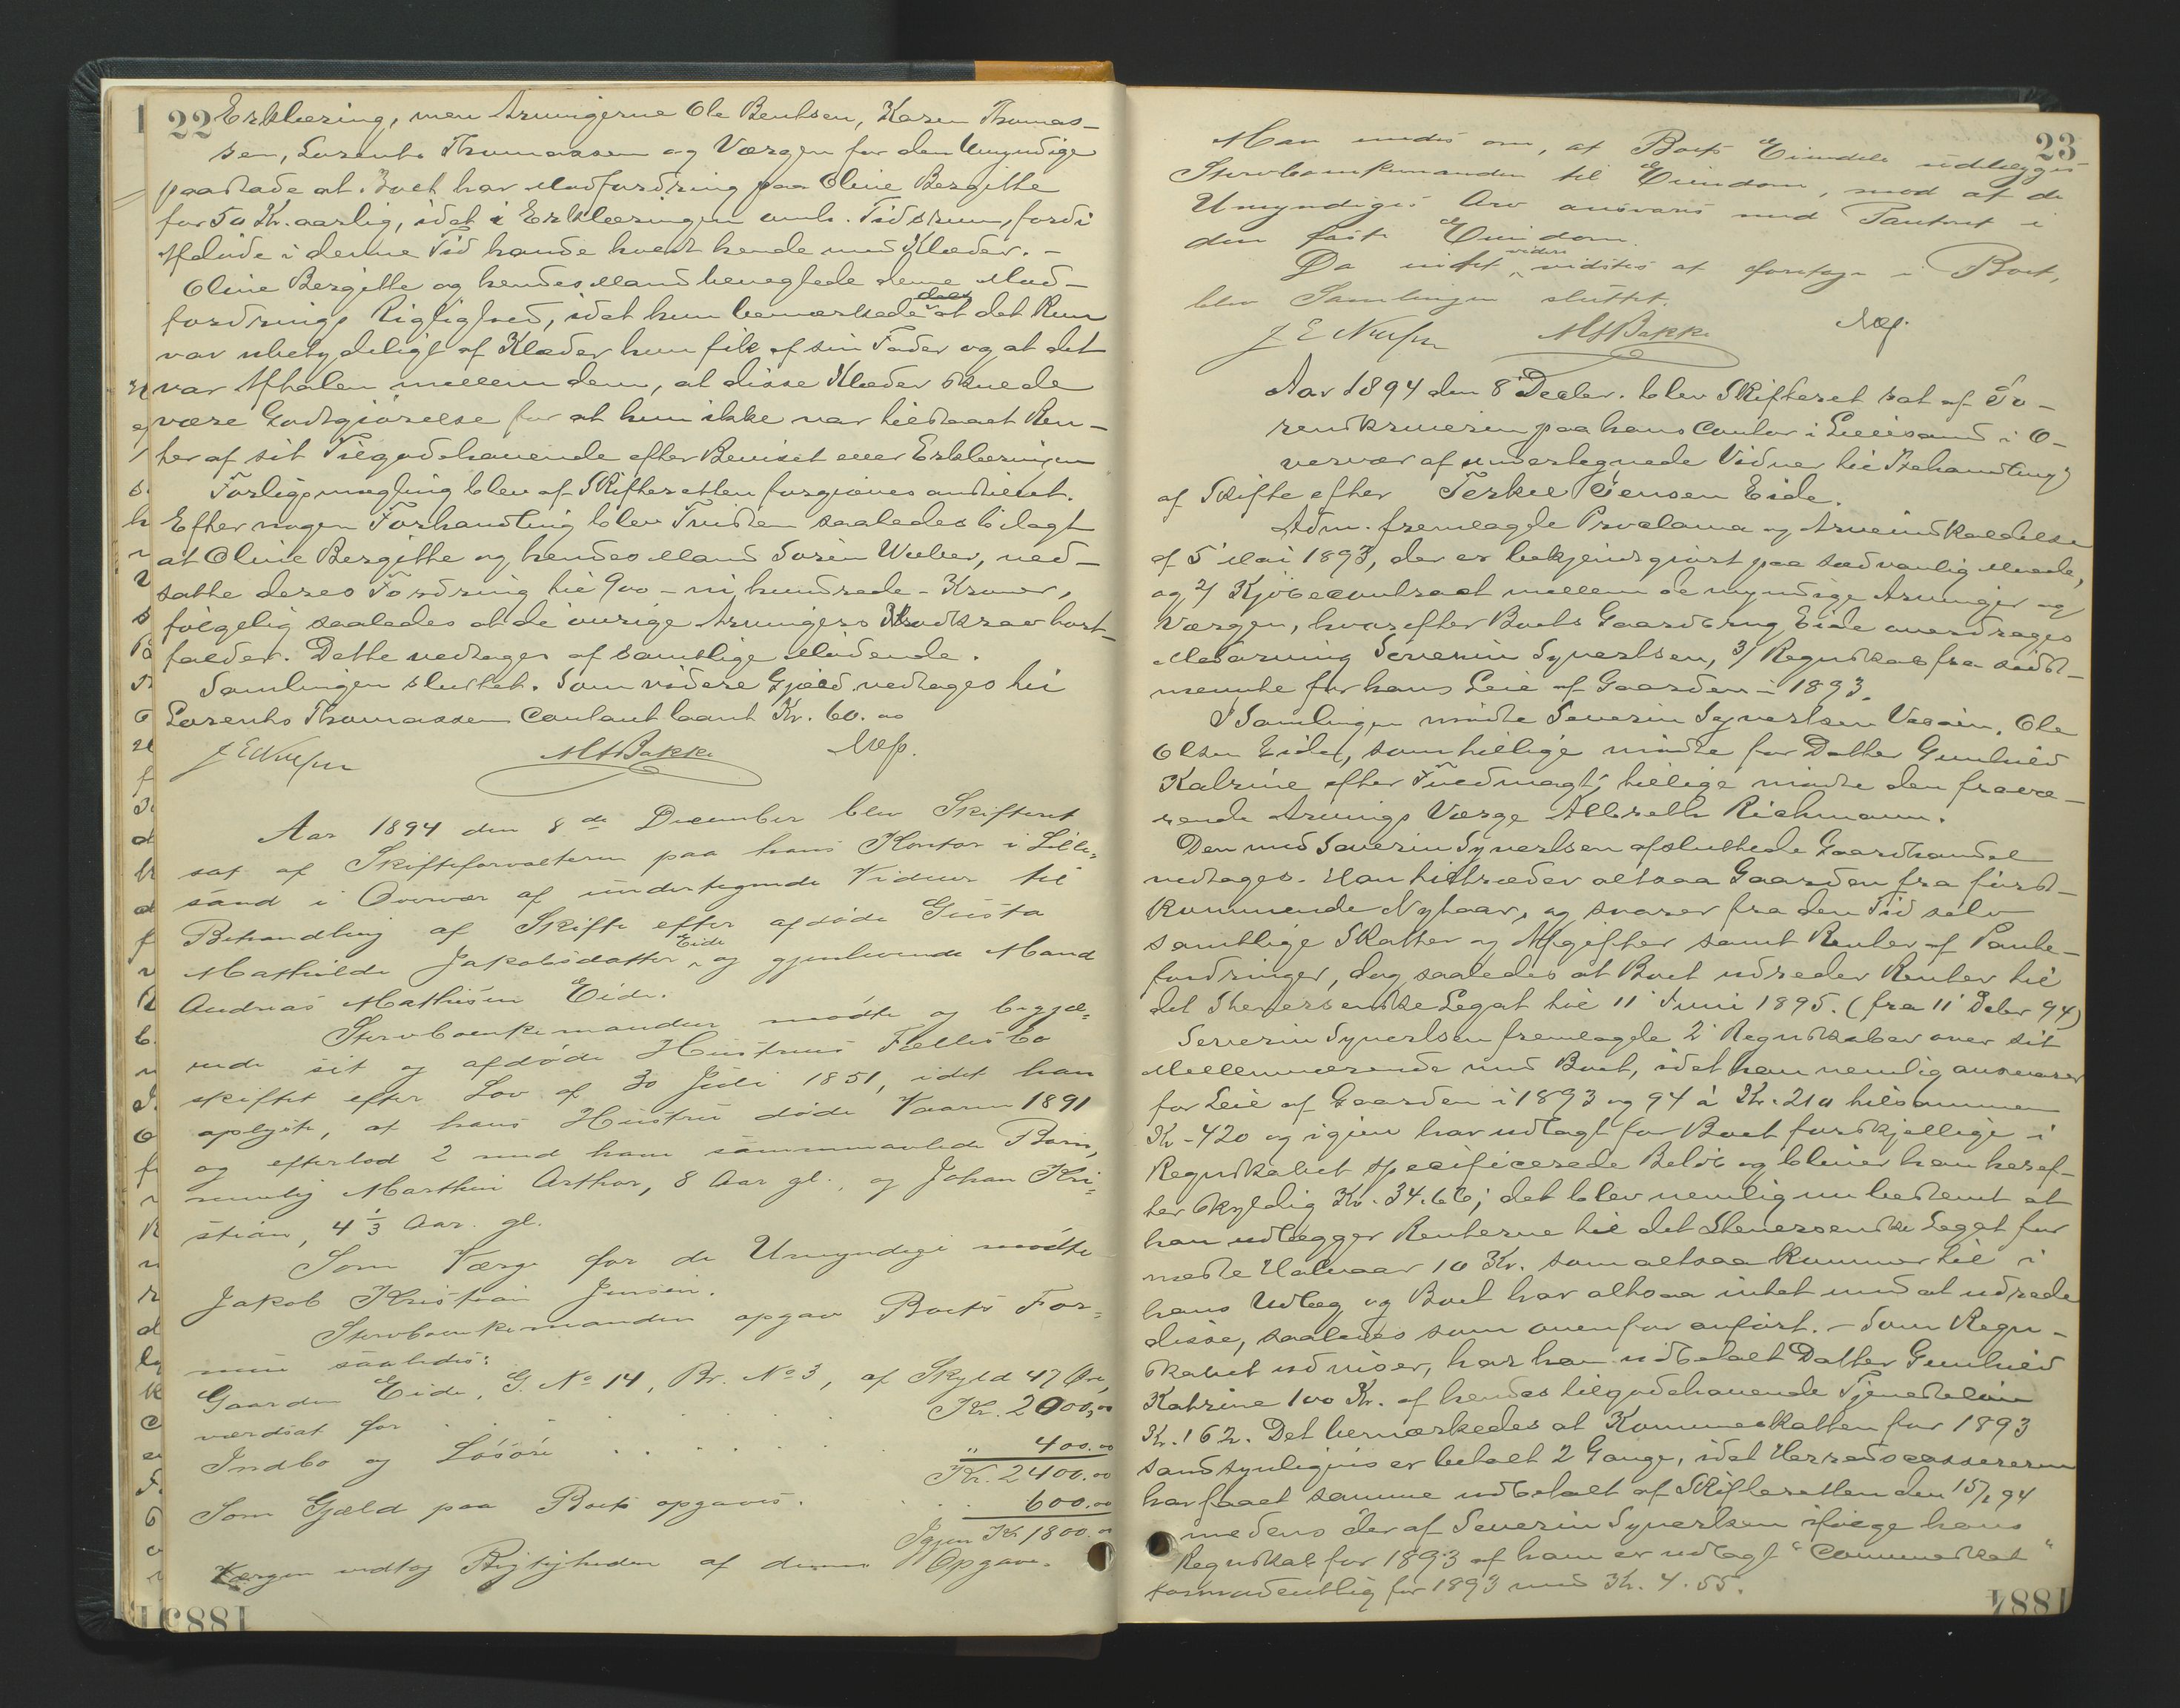 22
Erklæring, men Arvingerne Ole Bentsen, Karen Thomas-
sen, Lorents Thomassen og Værgen for den Umyndige
paastode at Boet har Modfordring paa Oline Bergitte
for 50 Kr. aarlig, idet i Erklæringen omh. Tidsrum, fordi
Afdøde i denne Tid havde holdt hende med Klæder. -
Oline Bergitte og hendes Mand benegtede denne Mod-
fordrings Rigtighed, idet hun bemærkede dels at det kun
var ubetydeligt af Klæder hun fik af sin Fader og at det
var Aftalen mellem dem, at disse Klæder skulde
være Godtgjørelse for at hun ikke var tilstaaet Ren-
ter af sit Tilgodehavende efter Beviset eller Erklæringen
Forligsmægling blev af Skifteretten forgjæves anstillet.
Efter nogen Forhandling blev Tvisten saaledes bilagt
at Oline Bergitte og hendes Mand Sørin Weber, ned-
satte deres Fordring til 900 - ni hundrede - Kroner,
følgelig saaledes at de øvrige Arvingers Modkrav bort-
falder. Dette vedtages af samtlige Mødende.
Samlingen sluttet. Som videre Gjæld vedtages til
Lorents Thomassen Contant laant Kr. 60.00
MABakke
Aar 1894 den 8de December blev Skifteret
sat af Skifteforvalteren paa hans Kontor i Lille-
sand i Overvær af undertegnede Vidner til
Behandling af Skifte efter afdøde Gusta
Mathilde Jakobsdatter Eide og gjenlevende Mand
Andreas Mathisen Eide.
Stervboenkemanden mødte og begjæ-
rede sit og afdøde Hustrus Fællesbo
skiftet efter Lov af 30 Juli 1851, idet han
oplyste, at hans Hustru døde Vaaren 1891
og efterlod 2 med ham sammenavlede Børn,
nemlig Marthin Arthur, 8 Aar gl., og Johan Kri-
stian, 4 1/3 Aar gl.
Som Værge for de Umyndige mødte
Jakob Kristian Jensen.
Stervboenkemanden opgav Boets For-
mue saaledes:
Gaarden Eide, G. No 14, Br. No 3, af Skyld 47 Øre,
værdsat for . . . . . . Kr. 2000,00
Indbo og Løsøre . . . . . " 400.00
Kr. 2400.00
Som Gjæld paa Boets opgaves . . . 600.00
Igjen Kr 1800.00
Værgen vedtog Rigtigheden af denne Opgave.
23
Man enedes om, at Boets Eiendele udlægges
Stervboenkemanden til Eiendom, mod at de
Umyndiges Arv ansvares med Panteret i
den faste Eiendom.
Da intet videre vidstes at foretage i Boet,
blev Samlingen sluttet.
MABakke
Aar 1894 den 8 Decbr. blev Skifteret sat af So-
renskriveren paa hans Contor i Lillesand i O-
vervær af undertegnede Vidner til Behandling
af Skifte efter Terkel Jensen Eide.
Adm. fremlagde Proclama og Arveindkaldelse
af 5 Mai 1893, der er bekjendtgjort paa sædvanlig Maade,
og 2/ Kjøbecontract mellem de myndige Arvinger og
Værgen, hvorefter Boets Gaardbrug Eide overdrages
Medarving Severin Syvertsen, 3/ Regnskab fra sidst-
nævnte for hans Leie af Gaarden i 1893.
I Samlingen mødte Severin Syvertsen Vesøen, Ole
Olsen Eide, som tillige mødte for Datter Gunhild
Katrine efter Fuldmagt; tillige mødte den fravæ-
rende Arvings Værge Albreth Richmann.
Den med Severin Syvertsen afsluttede Gaardhandel
vedtages. Han tiltræder altsaa Gaarden fra først-
kommende Nytaar, og svarer fra den Tid selv
samtlige Skatter og Afgifter samt Renter af Pante-
fordringer, dog saaledes at Boet udreder Renter til
det Stenersenske Legat til 11 Juni 1895. (fra 11 Decbr 94)
Severin Syvertsen fremlagde 2 Regnskaber over sit
Mellemværende med Boet, idet han nemlig ansvarer
for Leie af Gaarden i 1893 og 94 à Kr. 210 tilsammen
Kr. 420 og igjen har udlagt for Boet forskjellige i
Regnskabet specificerede Beløb og bliver han heref-
ter skyldig Kr. 34.66; det blev nemlig nu bestemt at
han udlægger Renterne til det Stenersenske Legat for
næste Halvaar 10 Kr. som altsaa kommer til i
hans Udlæg og Boet har altsaa intet med at udrede
disse, saaledes som ovenfor anført. - Som Regn-
skabet udviser, har han udbetalt Datter Gunhild
Katrine 100 Kr. af hendes tilgodehavende Tjenesteløn
Kr. 162. Det bemærkedes at Kommuneskatten for 1893
sandsynligvis er betalt 2 Gange, idet Herredscassereren
har faaet samme udbetalt af Skifteretten den 15/2 94
medens der af Severin Syvertsen ifølge hans
Regnskab for 1893 af ham er udlagt "Communeskat"
formodentlig for 1893 med Kr. 4.55.
1884